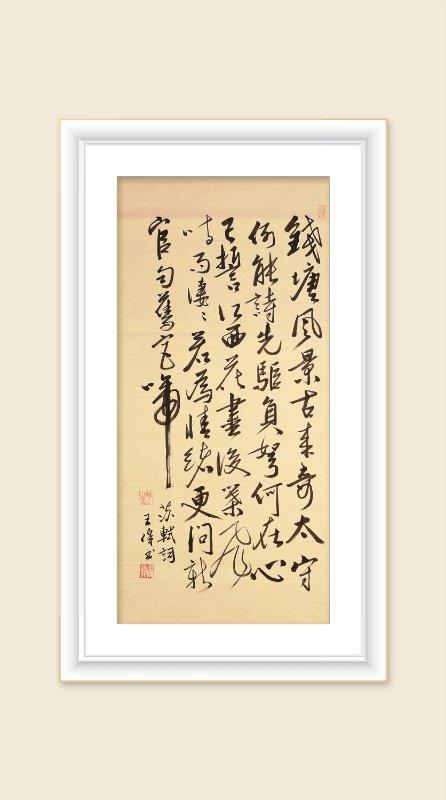 錢塘风景古来奇太守
例能詩先驅負弩何在心
已誓江西花盡後葉飛
時雨凄〻若為情緒更問新
官向舊官啼
苏軾詞
王偉书